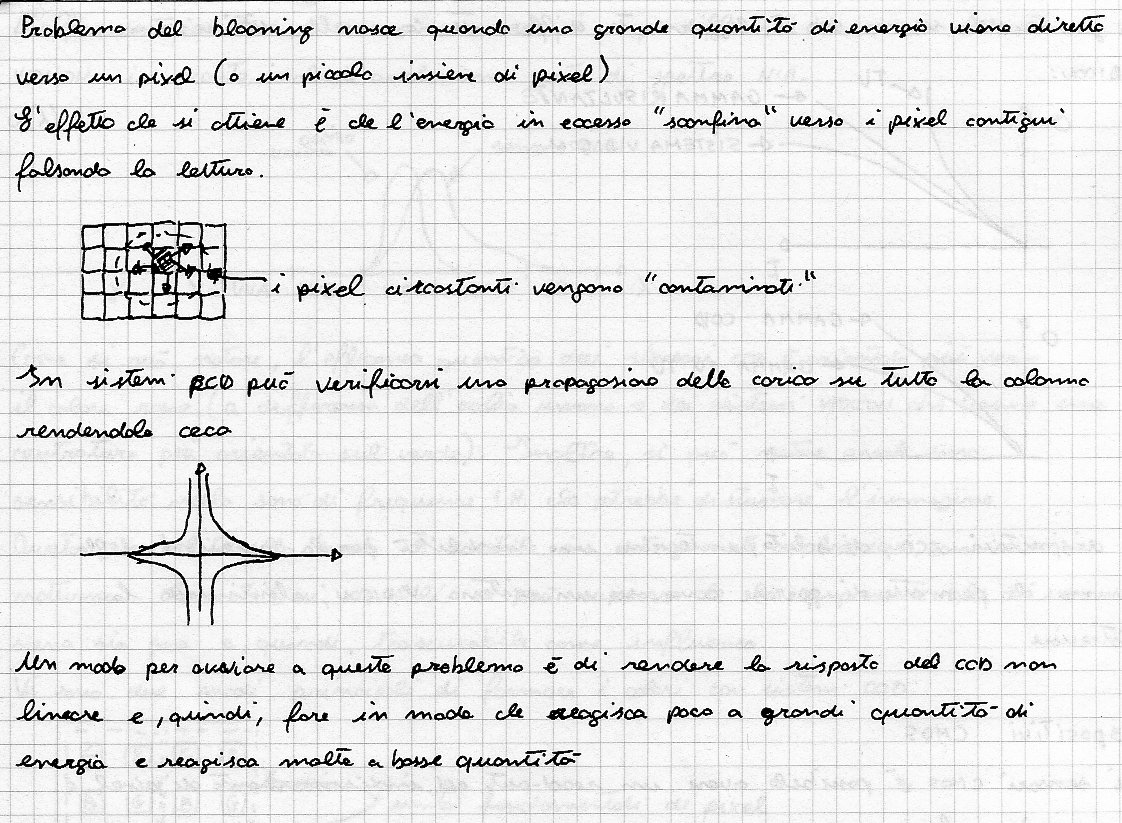 Problema del blooming nasce quando una grande quantità di energia viene diretta
verso un pixel (o un piccolo insieme di pixel)
L'effetto che si ottiene è che l'energia in eccesso "sconfina" verso i pixel contigui
falsando la lettura.
i pixel circostanti vengono "contaminati"
In sistemi CCD può verificarsi una propagazione della carica su tutta la colonna
rendendola ceca
Un modo per ovviare a questo problema è di rendere la risposta del CCD non
lineare e, quindi, fare in modo che reagisca poco a grandi quantità di
energia e reagisca molto a basse quantità